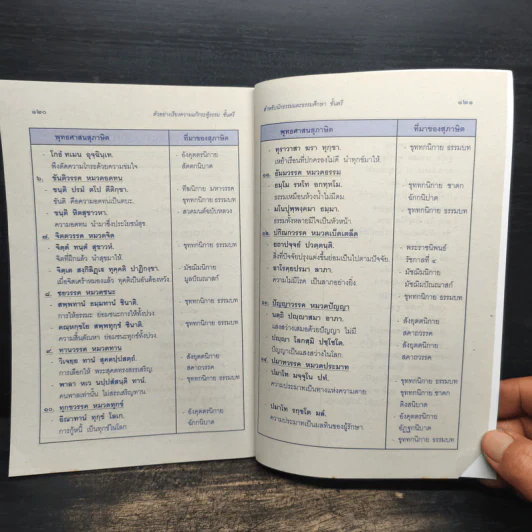 ๑๒๐
ตัวอย่างเรียงความแก้กระทู้ธรรม ชั้นตรี
พุทธศาสนสุภาษิต ที่มาของสุภาษิต
- โกธํ ทเมน อุจฺฉินฺเท. - อังคุตตรนิกาย
พึงตัดความโกรธด้วยความข่มใจ สัตตกนิบาต
๖. ขันติวรรค หมวดอดทน
- ขนฺติ ปรมํ ตโป ตีติกฺขา. - ทีฆนิกาย มหาวรรค
ขันติ คือความอดทนเป็นตบะ - ขุททกนิกาย ธรรมบท
- ขนฺติ หิตสุขาวหา. - สวดมนต์ฉบับหลวง
ความอดทน นำมาซึ่งประโยชน์สุข
๗. จิตตวรรค หมวดจิต
- จิตฺตํ ทนฺตํ สุขาวหํ. - ขุททกนิกาย ธรรมบท
จิตที่ฝึกแล้ว นำสุขมาให้
- จิตฺเต สงฺกิลิฏฺเฐ ทุคฺคติ ปาฏิกงฺขา. - มัชฌิมนิกาย
เมื่อจิตเศร้าหมองแล้ว ทุคติเป็นอันต้องหวัง มูลปัณณาสก์
๘. ชยวรรค หมวดชนะ
- สพฺพทานํ ธมฺมทานํ ชินาติ. - ขุททกนิกาย ธรรมบท
การให้ธรรมะ ย่อมชนะการให้ทั้งปวง
- ตณฺหกฺขโย สพฺพทุกฺขํ ชินาติ. - ขุททกนิกาย ธรรมบท
ความสิ้นตัณหา ย่อมชนะทุกข์ทั้งปวง
๙. ทานวรรค หมวดทาน
- วิเจยฺย ทานํ สุคตปฺปสตฺถํ. - สังยุตตนิกาย
การเลือกให้ พระสุคตทรงสรรเสริญ สคาถวรรค
- พาลา หเว นปฺปสํสนฺติ ทานํ. - ขุททกนิกาย ธรรมบท
คนพาลเท่านั้น ไม่สรรเสริญทาน
๑๐. ทุกขวรรค หมวดทุกข์
- อิณาทานํ ทุกฺขํ โลเก. - อังคุตตรนิกาย
การกู้หนี้ เป็นทุกข์ในโลก ฉักกนิบาต
สำหรับนักธรรมและธรรมศึกษา ชั้นตรี
๑๒๑
พุทธศาสนสุภาษิต ที่มาของสุภาษิต
- ทุราวาสา ฆรา ทุกฺขา. - ขุททกนิกาย ธรรมบท
เหย้าเรือนที่ปกครองไม่ดี นำทุกข์มาให้
๑๑. ธัมมวรรค หมวดธรรม
- ธมฺโม รหโท อกทฺทโม. - ขุททกนิกาย ชาดก
ธรรมเหมือนห้วงน้ำไม่มีตม ฉักกนิบาต
- มโนปุพฺพงฺคมา ธมฺมา. - ขุททกนิกาย ธรรมบท
ธรรมทั้งหลายมีใจเป็นหัวหน้า
๑๒. ปกิณกวรรค หมวดเบ็ดเตล็ด
- ยถาปจฺจยํ ปวตฺตนฺติ. - พระราชนิพนธ์
สิ่งที่ปัจจัยปรุงแต่งขึ้นย่อมเป็นไปตามปัจจัย รัชกาลที่ ๔
- อาโรคฺยปรมา ลาภา. - มัชฌิมนิกาย
ความไม่มีโรค เป็นลาภอย่างยิ่ง มัชฌิมปัณณาสก์
- ขุททกนิกาย ธรรมบท
๑๓. ปัญญาวรรค หมวดปัญญา
- นตฺถิ ปญฺญาสมา อาภา. - สังยุตตนิกาย
แสงสว่างเสมอด้วยปัญญา ไม่มี สคาถวรรค
- ปญฺญา โลกสฺมิ ปชฺโชโต. - สังยุตตนิกาย
ปัญญาเป็นแสงสว่างในโลก สคาถวรรค
๑๔. ปมาทวรรค หมวดประมาท
- ปมาโท มจฺจุโน ปทํ. - ขุททกนิกาย ธรรมบท
ความประมาทเป็นทางแห่งความตาย - ขุททกนิกาย ชาดก
- ปมาโท รกฺขโต มลํ. - อังคุตตรนิกาย
ความประมาทเป็นมลทินของผู้รักษา
- ขุททกนิกาย ธรรมบท